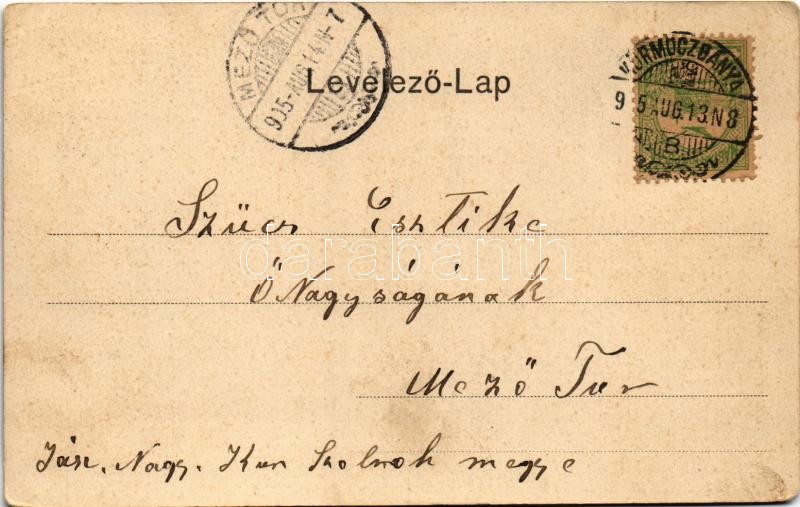 MEZŐ TÚR
905-AUG.14.N-7
Levelező-Lap
KÖRMÖCZBÁNYA
905 AUG.13.N8
B
Szücs Esztike
Ő Nagyságának
Mező Tur
Jász. Nagy. Kun Szolnok megye
darabanth